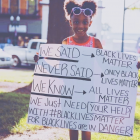 WE SAID → BLACK LIVES MATTER
NEVER SAID → ONLY BLACK LIVES MATTER
WE KNOW → ALL LIVES MATTER
WE JUST NEED YOUR HELP
WITH #BLACKLIVESMATTER
FOR BLACK LIVES ARE IN DANGER